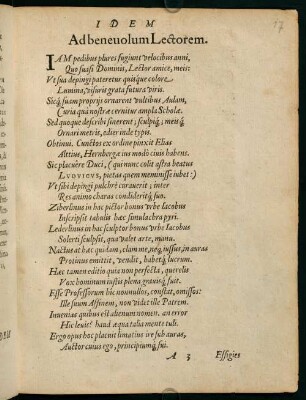 17
IDEM
Ad beneuolum Lectorem.
IAM pedibus plures fugiunt velocibus anni,
Quo suasi Dominis, Lector amice, meis:
Vt sua depingi pateretur quisque colore
Lumina, visuris grata futura viris.
Sicq́; suom proprijs ornarent vultibus Aulam,
Curia quà nostræ cernitur ampla Scholæ.
Sed quoque describi sinerent; sculpiq́; meisq́;
Ornari metris, edier inde typis.
Obtinui. Cunctos ex ordine pinxit Elias
Altius, Hernbergæ ius modò ciuis habens.
Sic placuêre Duci, (qui nunc colit astra beatus
LVDVICVS, pietas quem meminisse iubet:)
Vt sibi depingi pulchrè curauerit; inter
Res animo charas condideritq́; suo.
Ziberlinus in hæc pictor bonus vrbe Iacobus
Inscripsit tabulis hæc simulachra pyri.
Lederlinus in hac sculptor bonus vrbe Iacobus
Solerti sculpsit, qua valet arte, manu.
Nactus at hæc quidam, clam me, neq́; iussus, in auras
Protinus emittit, vendit, habetq́; lucrum.
Hæc tamen editio quia non perfecta, querelis
Vox hominum iustis plena grauisq́; fuit.
Esse Professorum hic nonnullos, constat, omissos:
Ille suum Affinem, non videt ille Patrem.
Inuenias quibus est alienum nomen. an error
Hic leuis? haud æqua talia mente tuli.
Ergo opus hoc placuit limatius ire sub auras,
Auctor cuius ego, principiumq́; fui.
A 3 Effigies